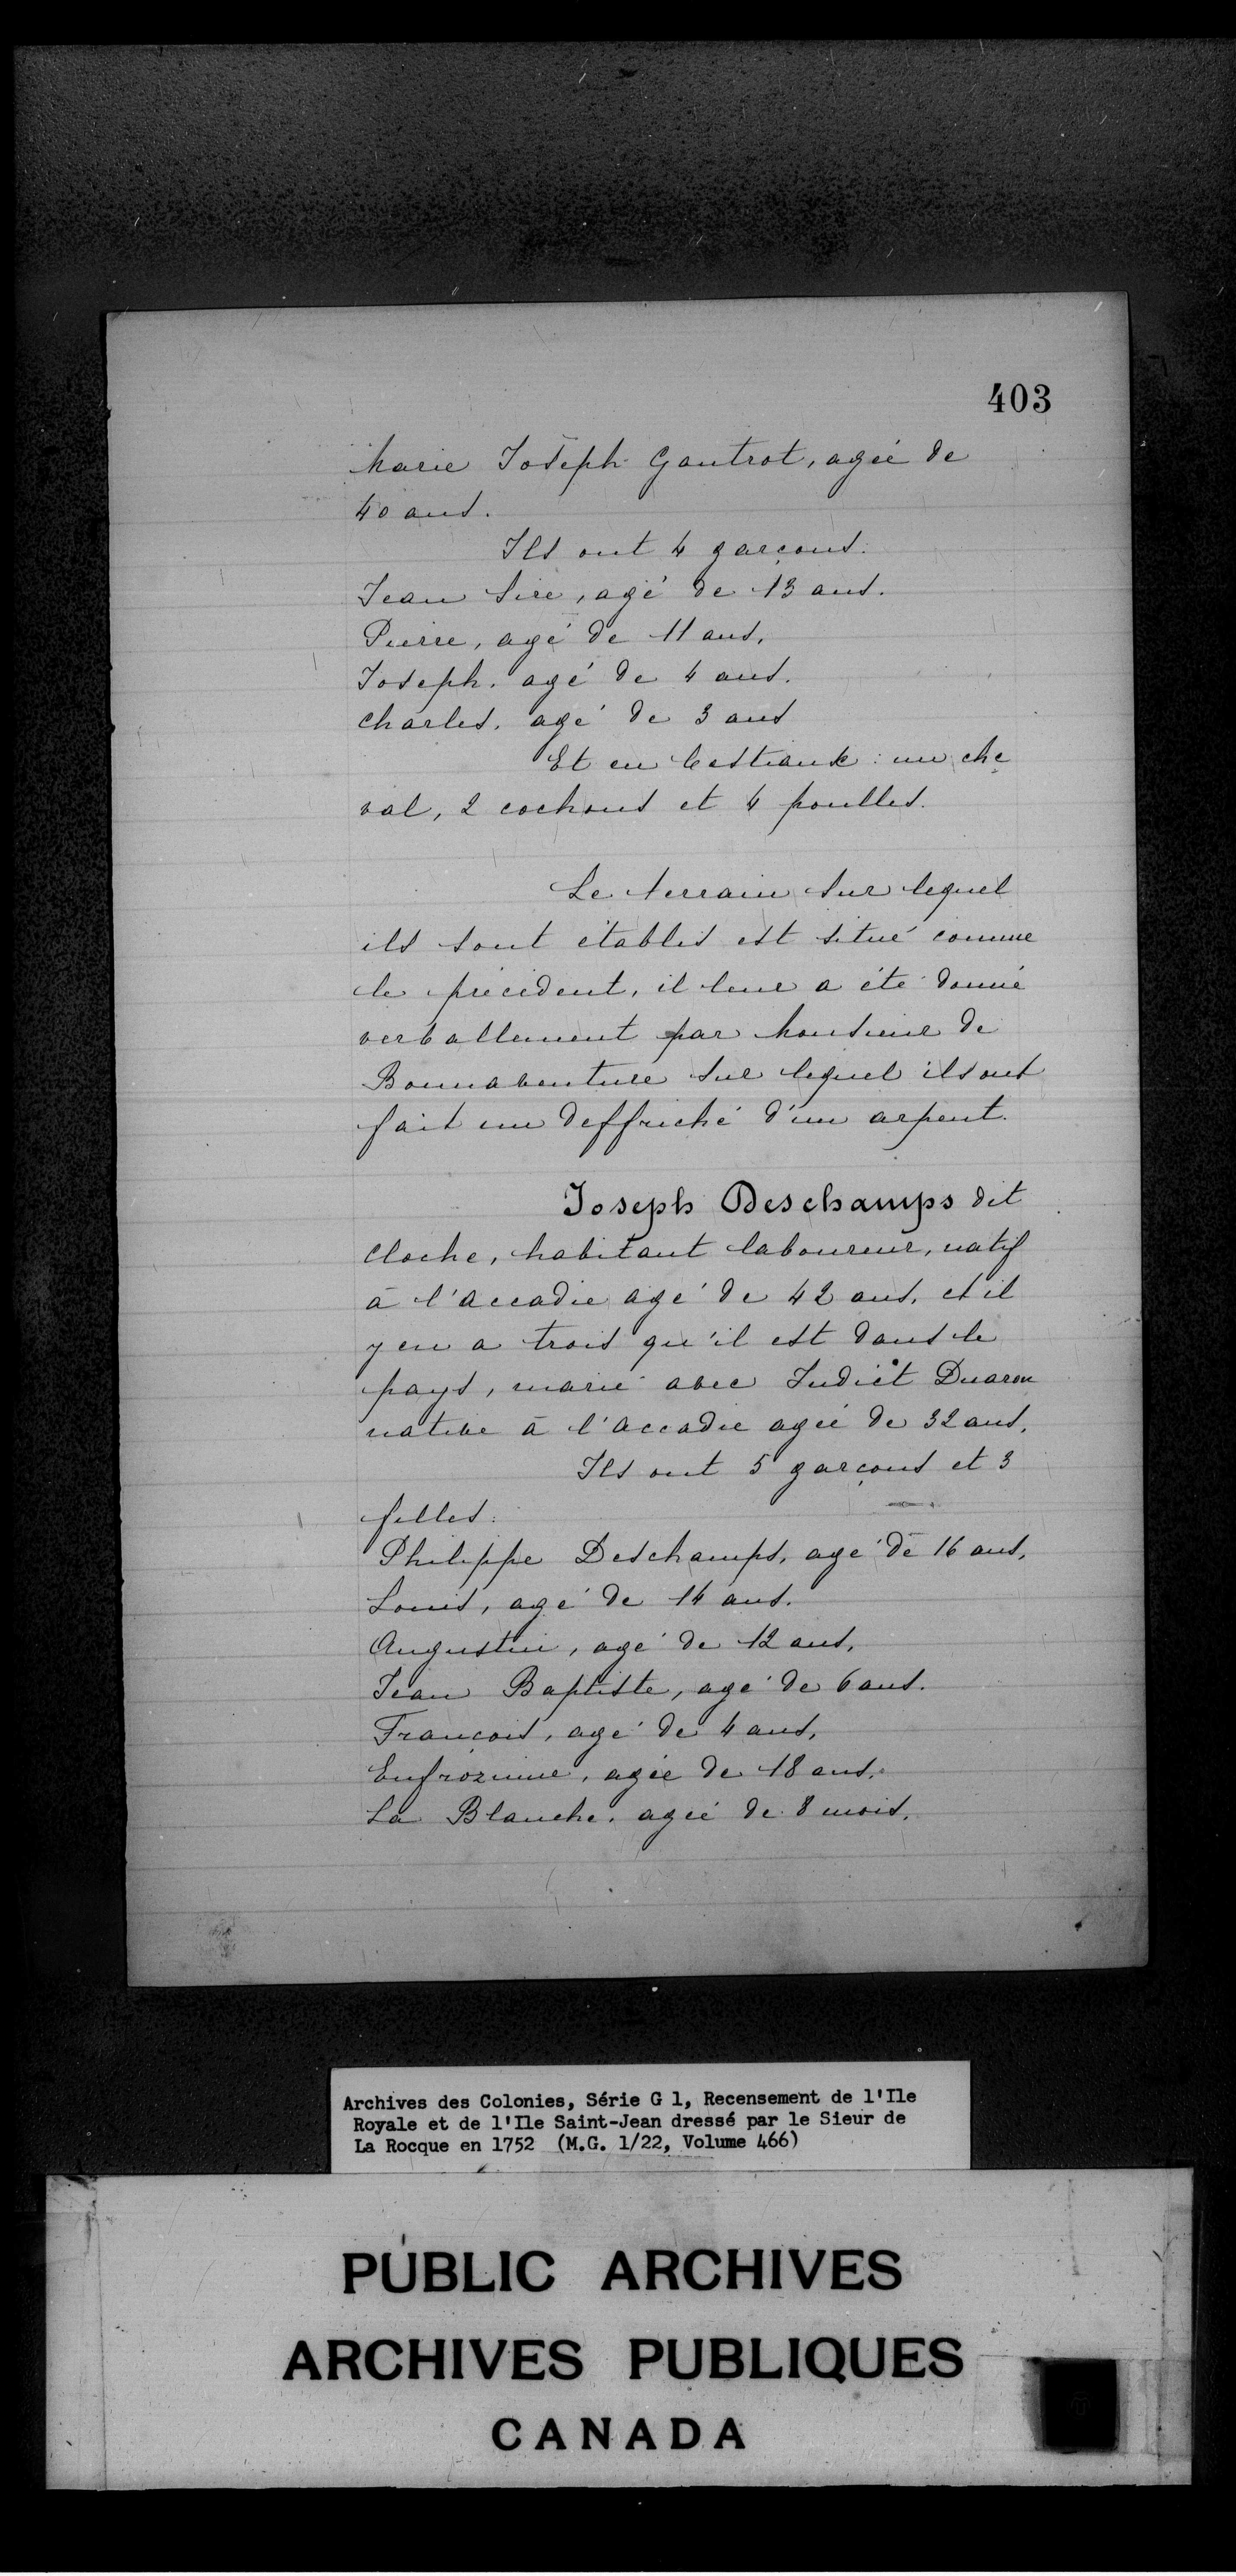 403
Marie Joseph Gautrot, ageé de
40 ans.
Ils ont 4 garçons:
Jean Sire, agé de 13 ans.
Pierre, agé de 11 ans,
Joseph, agé de 4 ans.
Charles, agé de 3 ans
Et en bestiaux : un che
val, 2 cochons et 4 poulles.
Le terrain sur lequel
ils sont établis est situé comme
le précédent, il leur a été donné
verballement par Monsieur de
Bonnaventure sur lequel ils ont
fait un deffriché d'un arpent.
Joseph Deschamps dit
Cloche, habitant laboureur, natif
à l'accadie agé de 42 ans, et il
y en a trois qu'il est dans le
pays, marié avec Judict Duaron
native à l'accadie ageé de 32 ans,
Ils ont 5 garçons et 3
filles:
Philippe Deschamps, agé de 16 ans,
Louis, agé de 14 ans.
Augustin, agé de 12 ans,
Jean Baptiste, agé de 6 ans.
François, agé de 4 ans,
Eufrozinne, agée de 18 ans,
La Blanche, ageé de 8 mois,
Archives des Colonies, Série G 1, Recensement de l'Ile
Royale et de l'Ile Saint-Jean dressé par le Sieur de
La Rocque en 1752 (M.G. 1/22, Volume 466)
PUBLIC ARCHIVES
ARCHIVES PUBLIQUES
CANADA